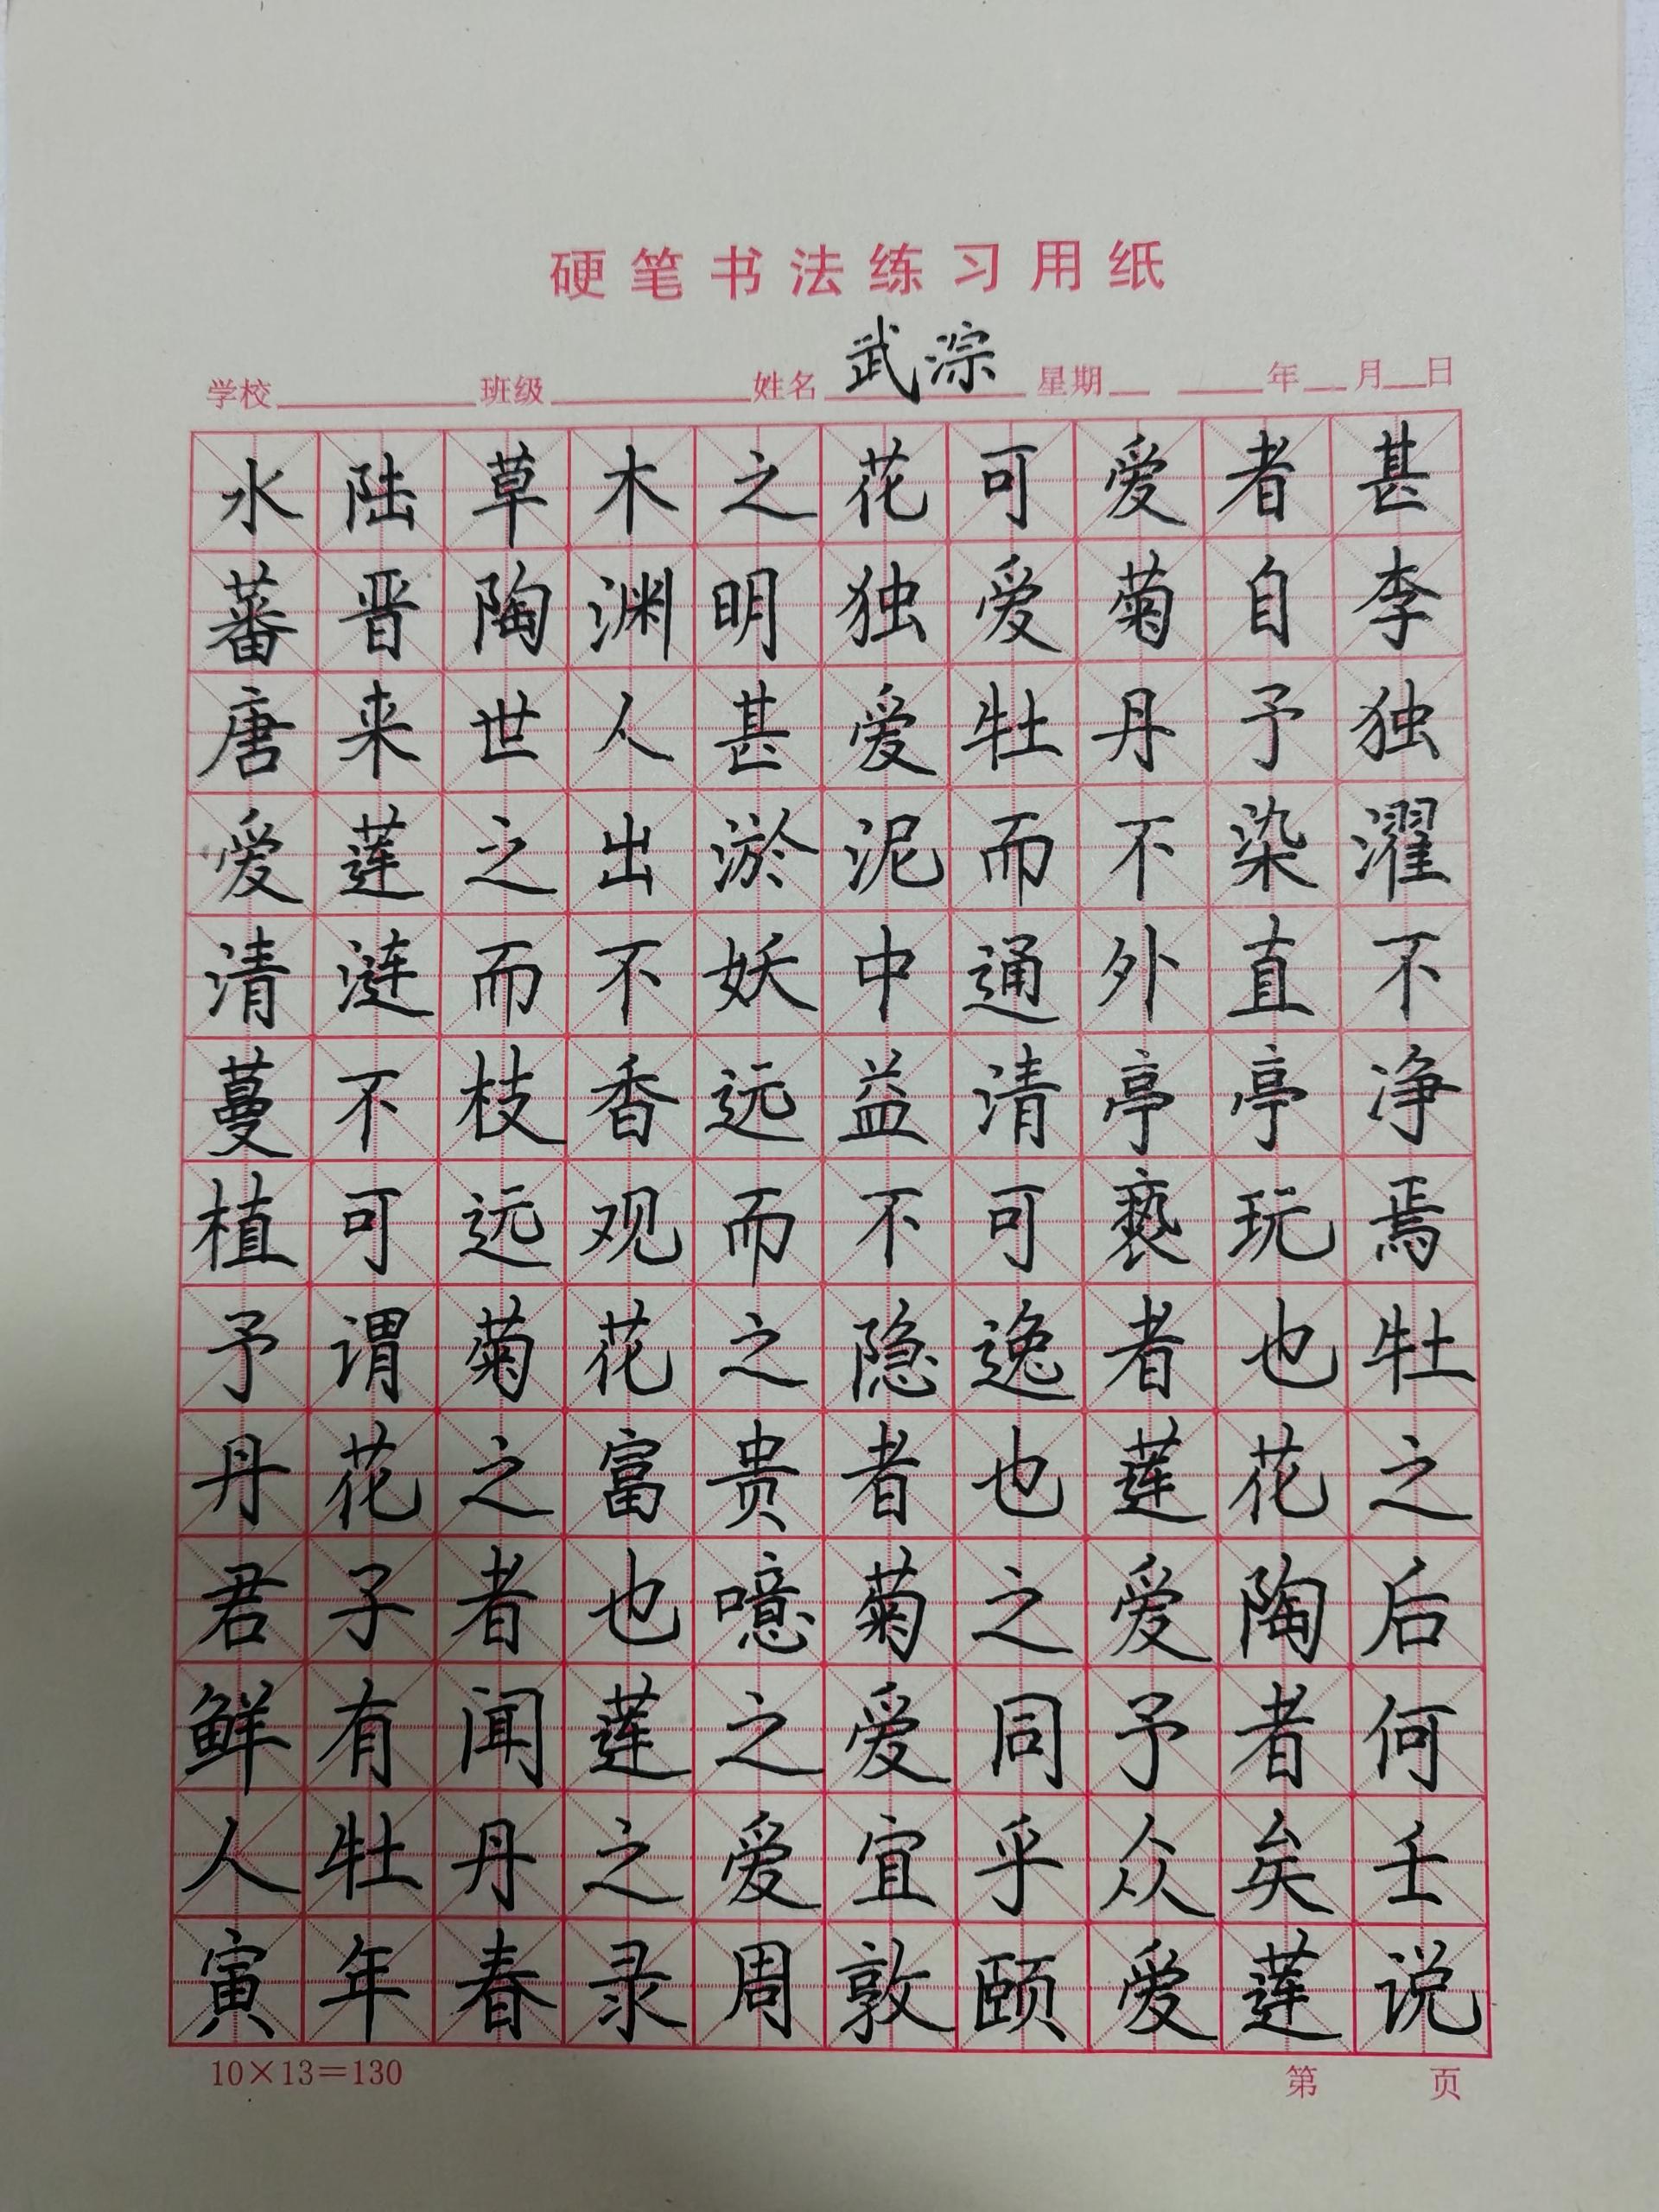 硬笔书法练习用纸
学校 班级 姓名 武淙 星期 年 月 日
水陆草木之花可爱者甚
蕃晋陶渊明独爱菊自李
唐来世人甚爱牡丹予独
爱莲之出淤泥而不染濯
清涟而不妖中通外直不
蔓不枝香远益清亭亭净
植可远观而不可亵玩焉
予谓菊花之隐逸者也牡
丹花之富贵者也莲花之
君子者也噫菊之爱陶后
鲜有闻莲之爱同予者何
人牡丹之爱宜乎众矣壬
寅年春录周敦颐爱莲说
10×13=130 第 页